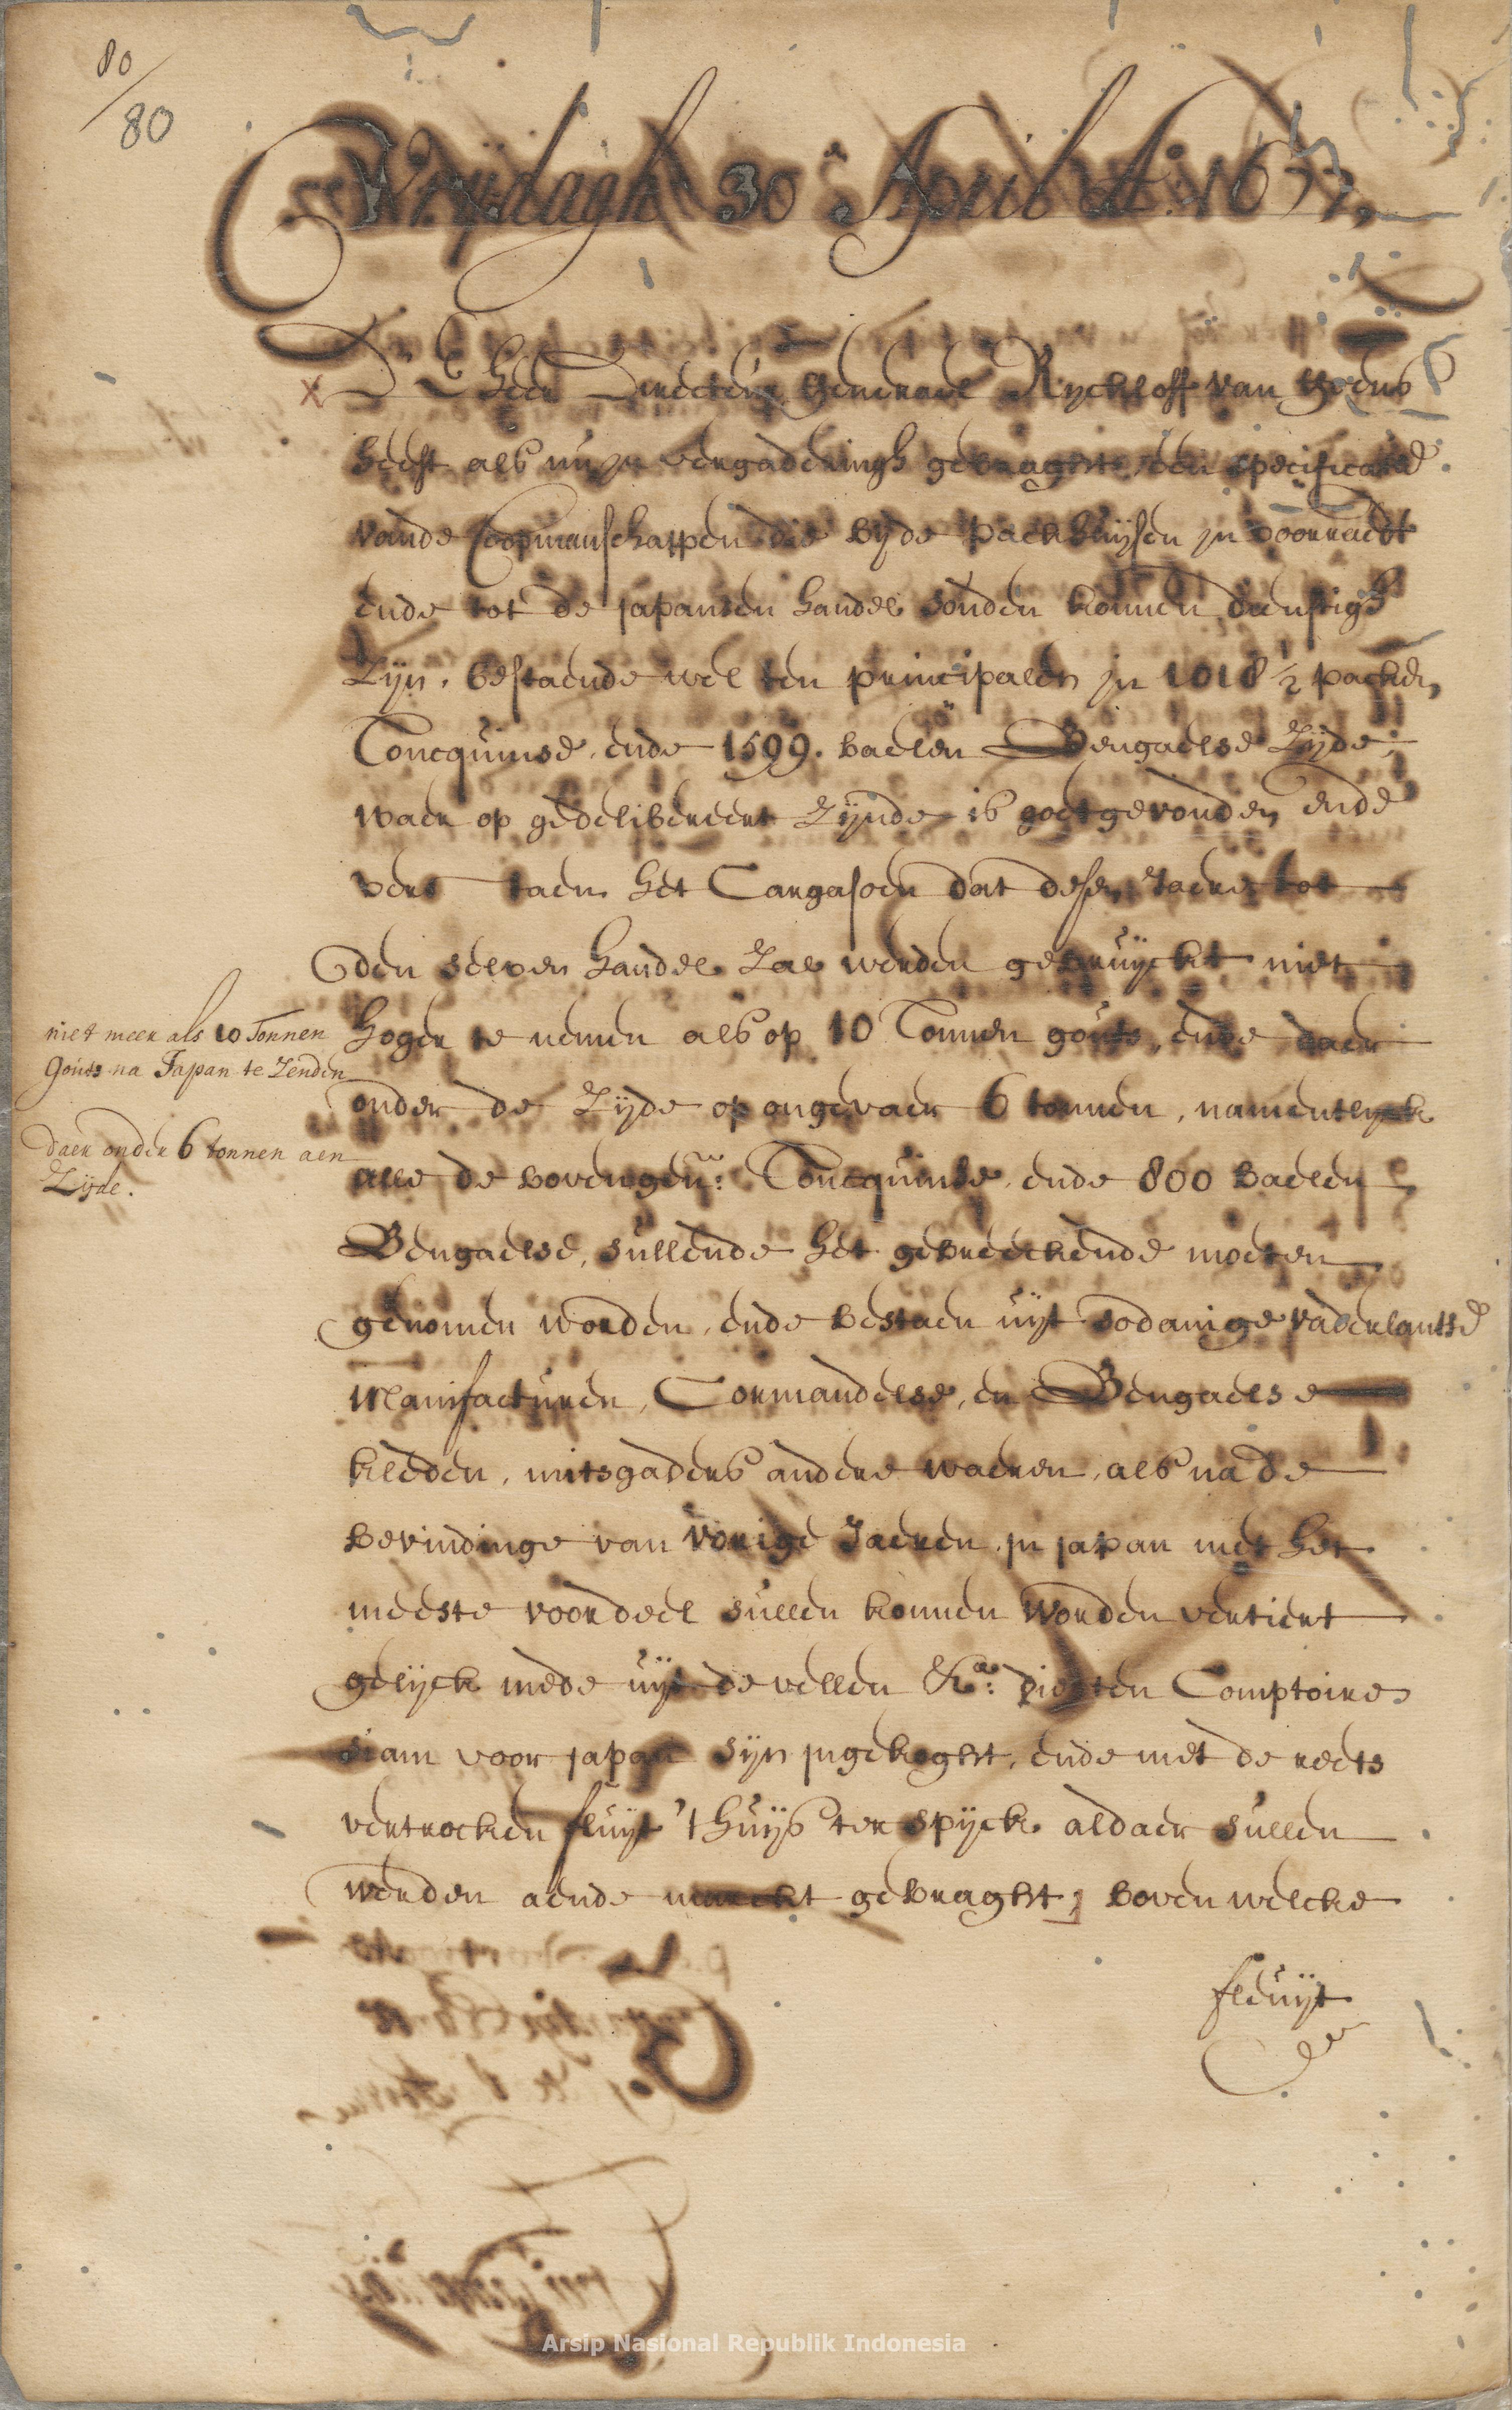 80
80
Vrijdagh 30en April Ao. 1677,
D' E Heer Directeur Generael Ryckloff van Goens
heeft als nu in vergaderingh gebraght, een specificatie
vande Coopmanschappen die by de Packhuijsen in voorraedt
ende tot de japansen handel souden konnen dienstigh
Zijn, bestaende wel ten principalen in 1018 1/2 packen
Toncquinse, ende 1599. baelen Bengaelse Zijde,
waer op gedelibereert Zijnde is goetgevonden ende
vers taen het Cargasoen dat desen Jaere tot
den selven handel Zal werden gebruijckt niet
hoger te nemen als op 10 Tonnen gouts, ende daer
niet meer als 10 Tonnen
Gouts na Japan te Zenden
onder de Zijde op ongevaer 6 tonnen, namentlyck
daer onder 6 tonnen aen
Zijde.
alle de bovengem: Toncquinse, ende 800 baelen
Bengaelse, sullende het gebreeckende moeten
genomen worden, ende bestaen uijt sodanige vaderlantse
Manifacturen, Cormandelse, en Bengaelse
kleden, mitsgaders andere waeren, als na de
bevindinge van vorige Jaeren, in japan met het
meeste voordeel sullen konnen worden vertiert
gelijck mede uijt de vellen &a: die ten Comptoire
siam voor japan sijn ingekoght, ende met de reets
vertrocken fluijt 't huijs ter spijck aldaer sullen
werden aende marckt gebraght; boven welcke
fleuijt
Arsip Nasional Republik Indonesia